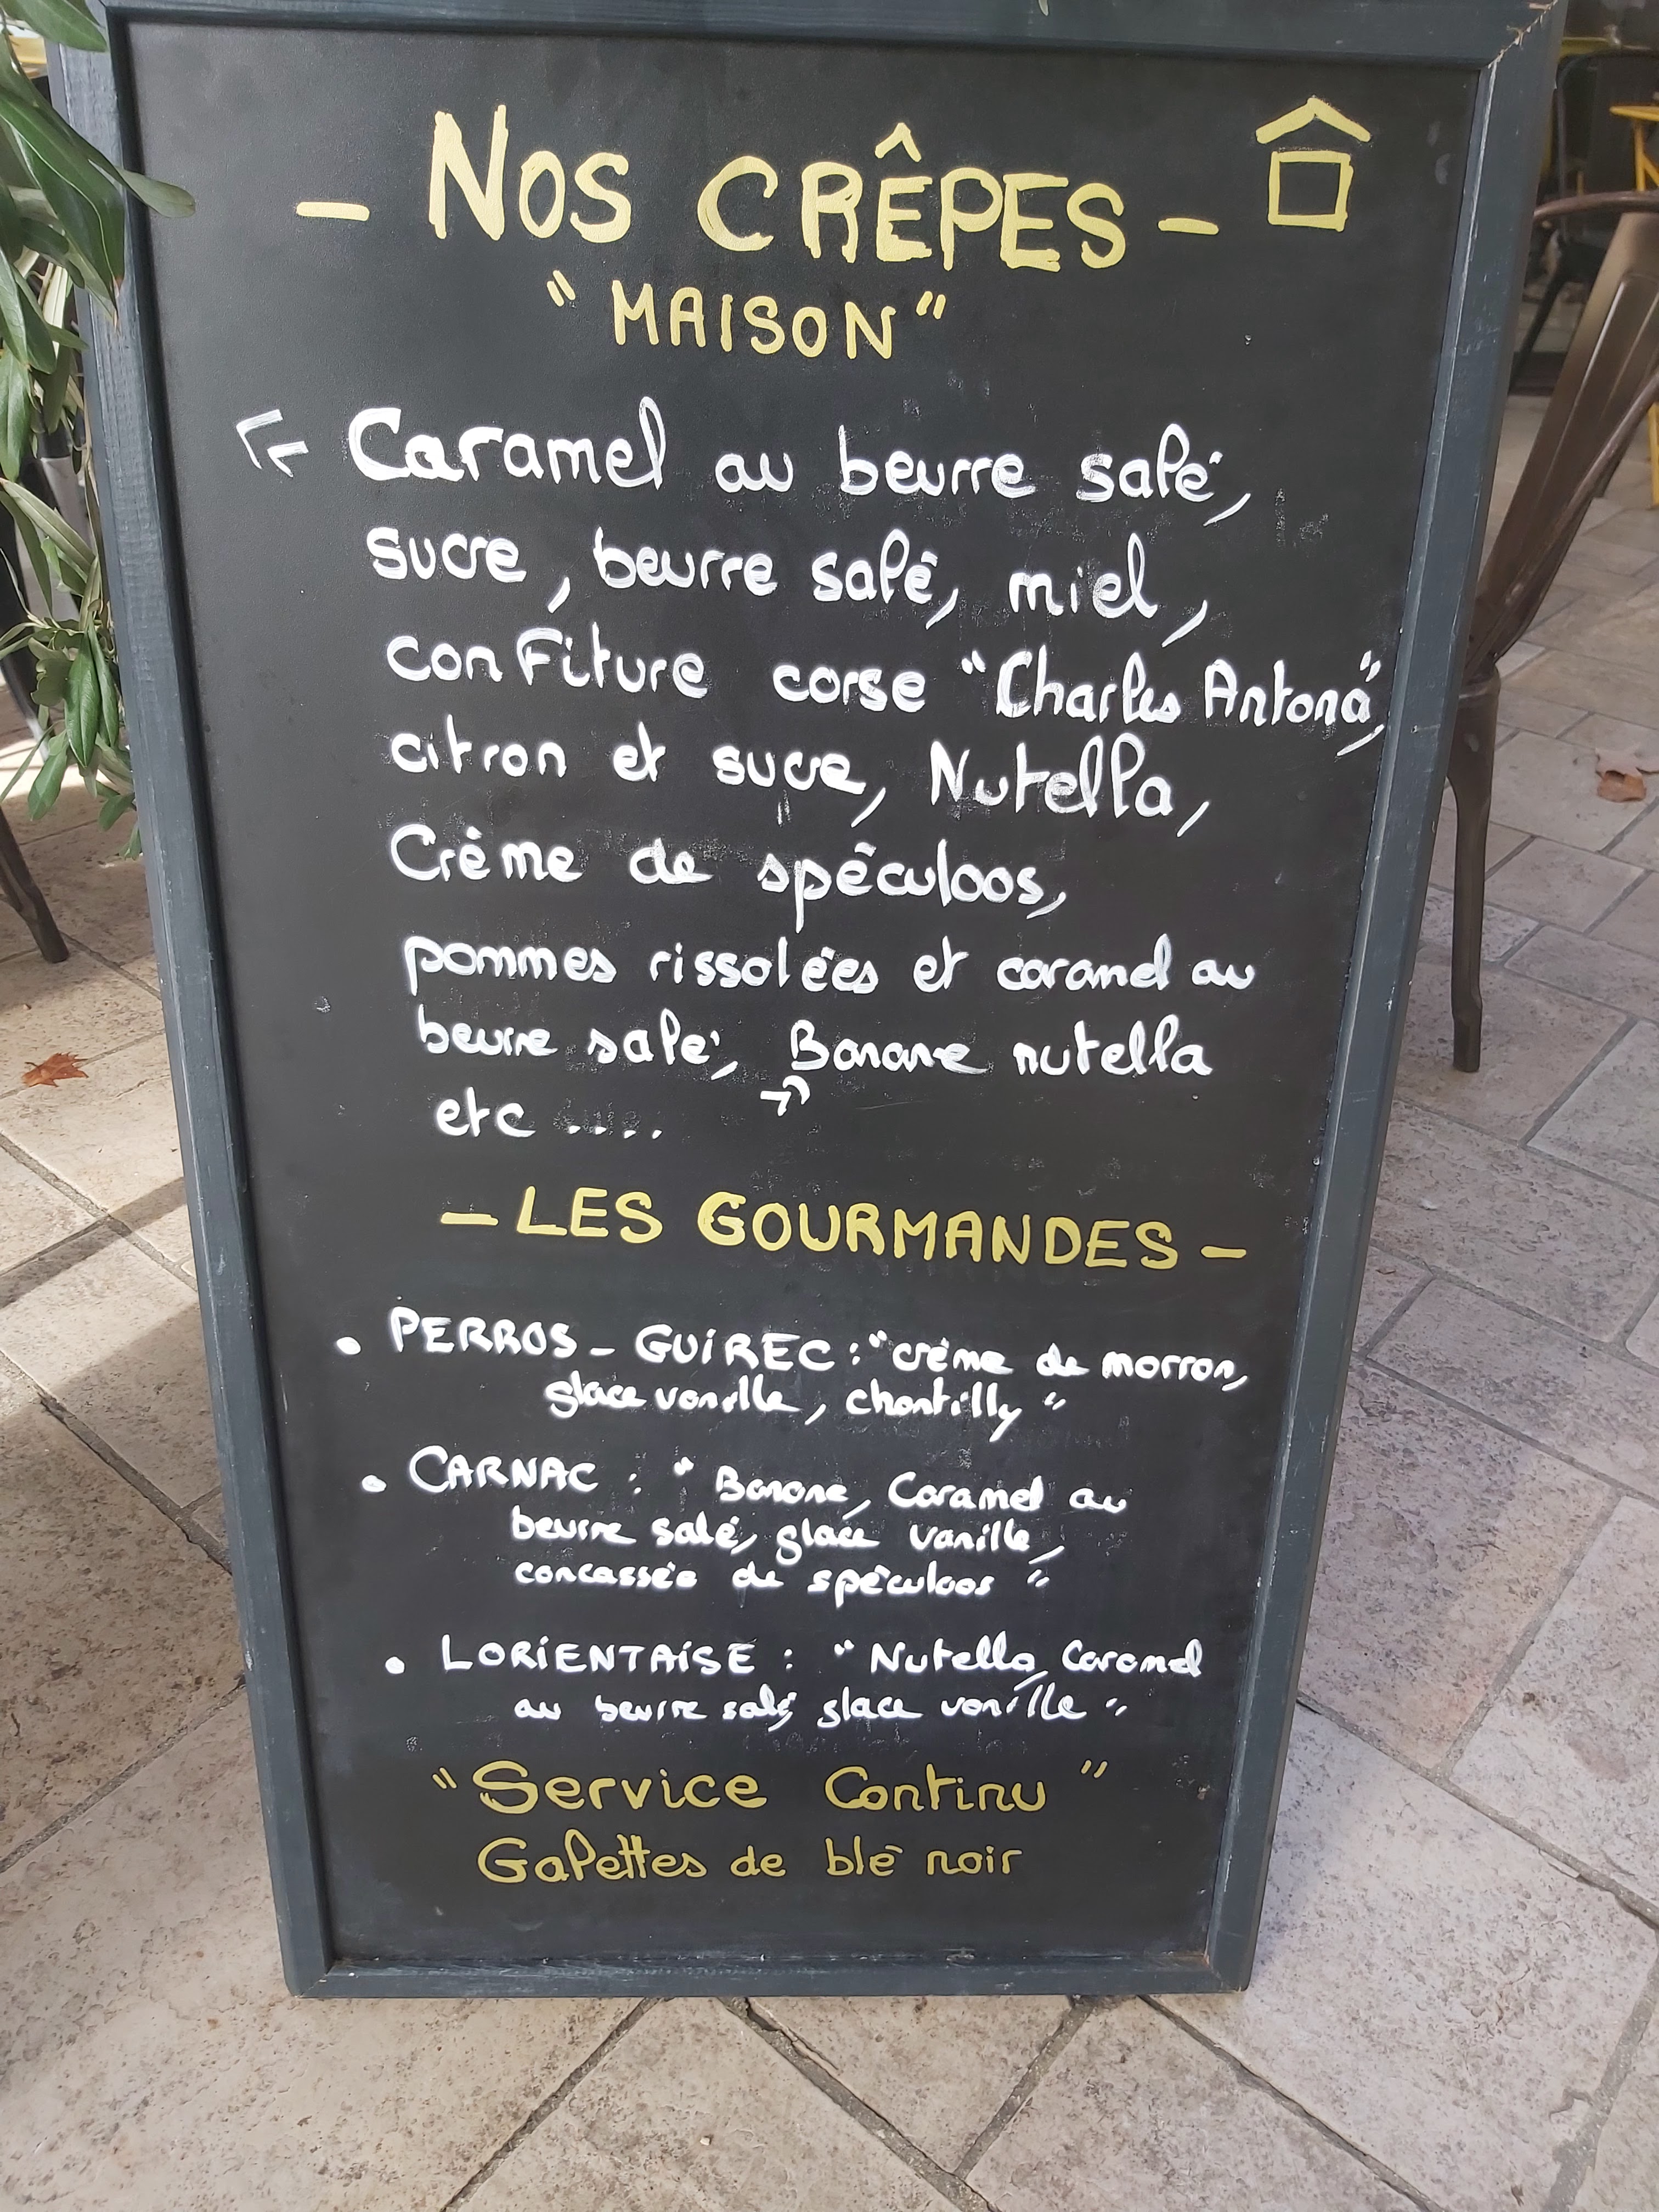 - NOS CRÊPES -
"MAISON"
« Caramel au beurre salé,
sucre, beurre salé, miel,
confiture corse "Charles Antona",
citron et sucre, Nutella,
Crème de spéculoos,
pommes rissolées et caramel au
beurre salé, Banane nutella
etc .... »
- LES GOURMANDES -
• PERROS-GUIREC : "crème de marron,
glace vanille, chantilly"
• CARNAC : "Banane, Caramel au
beurre salé, glace vanille,
concassée de spéculoos"
• LORIENTAISE : "Nutella, Caramel
au beurre salé, glace vanille"
"Service Continu"
Galettes de blé noir